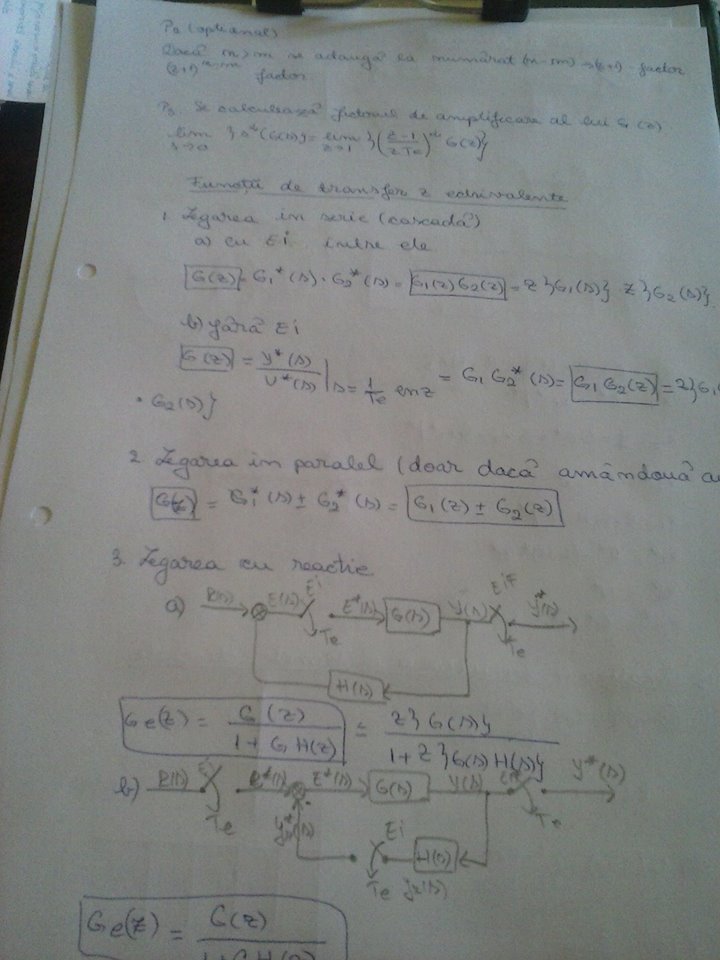 P2 (optional)
Dacă n>m se adaugă la numărat (n-m) → (z+1) - factor
(z+1)^(n-m) factor
P3. Se calculează factorul de amplificare al lui G(z)
lim s→0 {s^n(G(s)} = lim z→1 {((z-1)/(zTe))^n G(z)}
Funcții de transfer z echivalente
1. Legarea in serie (cascadă)
a) cu Ei intre ele
G(z) = G1*(s) · G2*(s) = G1(z) G2(z) = Z{G1(s)} · Z{G2(s)}
b) fără Ei
G(z) = Y*(s)/U*(s) | s = 1/Te ln z = G1 G2*(s) = G1 G2(z) = Z{G1(
· G2(s)}
2. Legarea in paralel (doar dacă amândouă au
G(z) = G1*(s) ± G2*(s) = G1(z) ± G2(z)
3. Legarea cu reactie
a) R(s) E(s) Ei Te E*(s) G(s) Y(s) EiF Te Y*(s)
H(s)
Ge(z) = G(z)/(1 + GH(z)) = Z{G(s)}/(1 + Z{G(s)H(s)})
b) R(s) Ei Te R*(s) E*(s) G(s) Y(s) Te Y*(s)
Ei H(s)
Te
Ge(z) = G(z)/